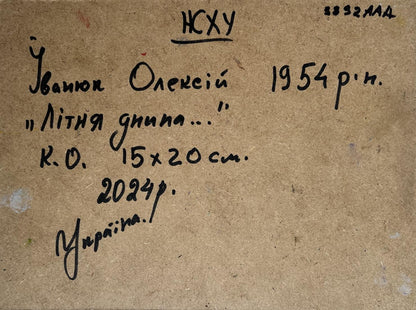 НСХУ
3392ЛАД
Їванюк Олексій 1954 р.н.
„Літня днина..."
К.О. 15х20 см.
2024р.
Україна.